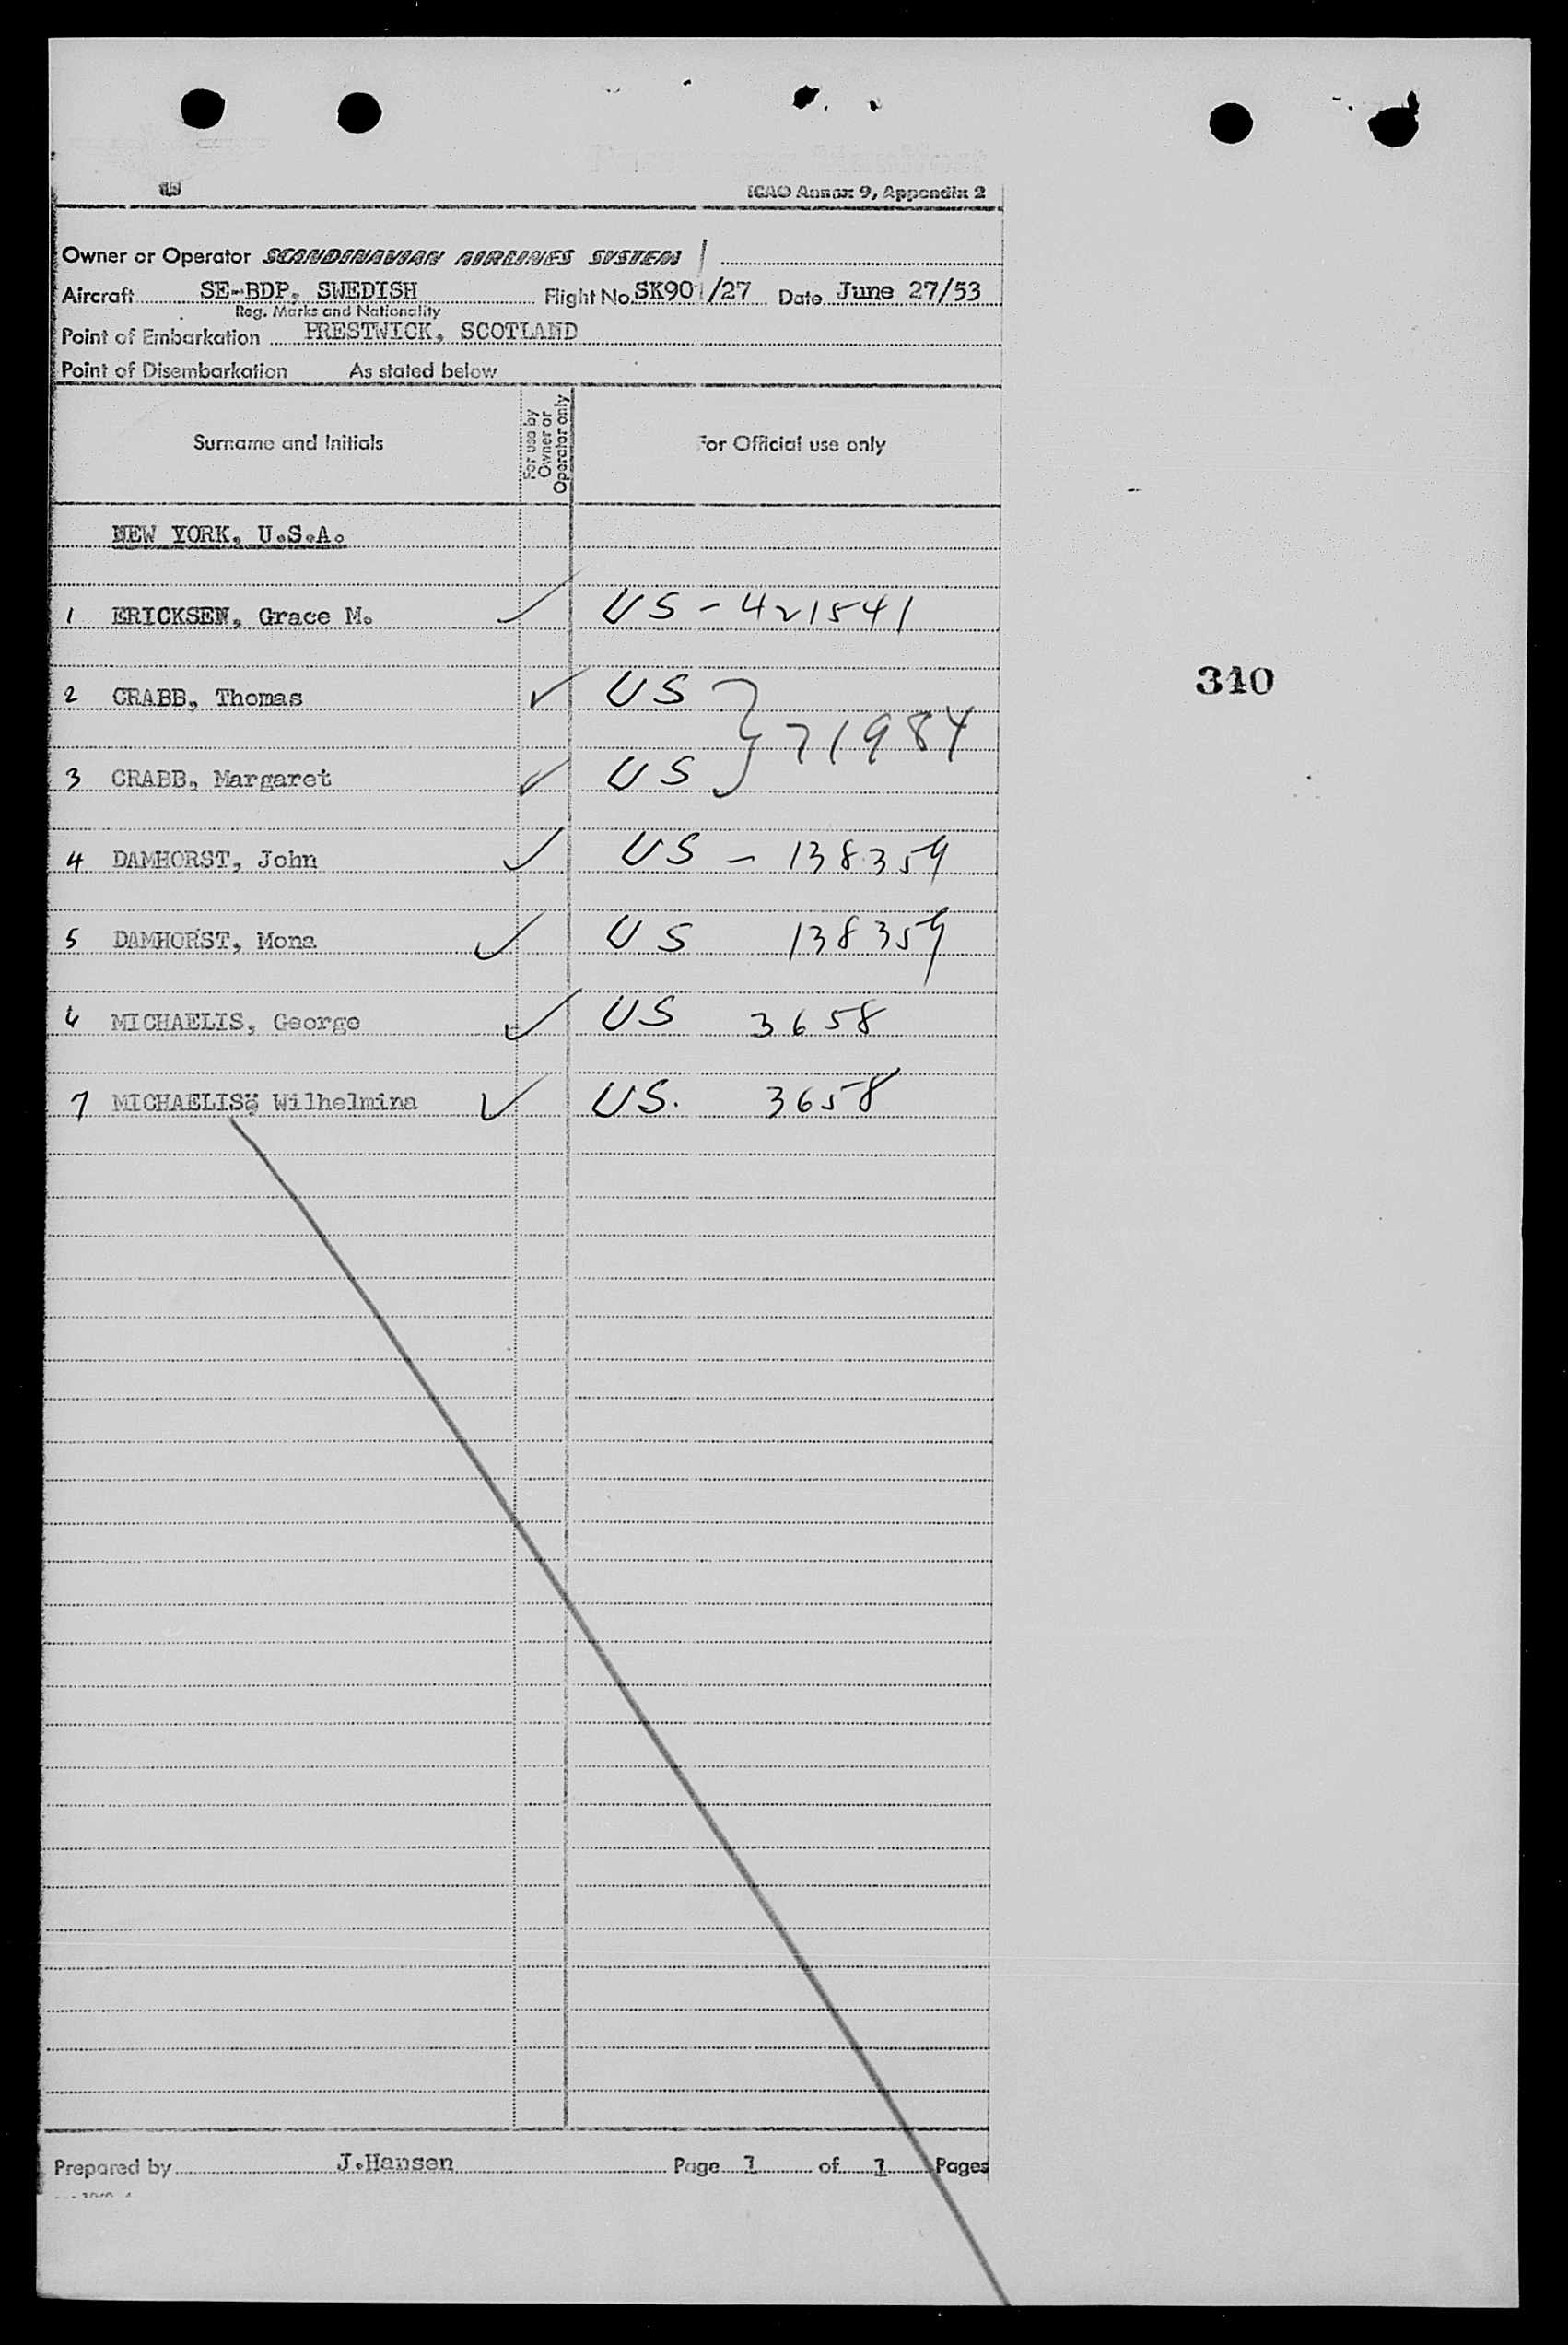 ICAO Annex 9, Appendix 2
Owner or Operator SCANDINAVIAN AIRLINES SYSTEM
Aircraft SE-BDP. SWEDISH Flight No. SK901/27 Date June 27/53
Reg. Marks and Nationality
Point of Embarkation PRESTWICK, SCOTLAND
Point of Disembarkation As stated below
Surname and Initials
For use by
Owner or
Operator only
For Official use only
NEW YORK, U.S.A.
1 ERICKSEN, Grace M. ✓ US - 421541
2 CRABB, Thomas ✓ US
} 71984
3 CRABB, Margaret ✓ US
4 DAMHORST, John ✓ US - 138359
5 DAMHORST, Mona ✓ US 138359
6 MICHAELIS, George ✓ US 3658
7 MICHAELIS, Wilhelmina ✓ US. 3658
310
Prepared by J.Hansen Page 1 of 1 Pages